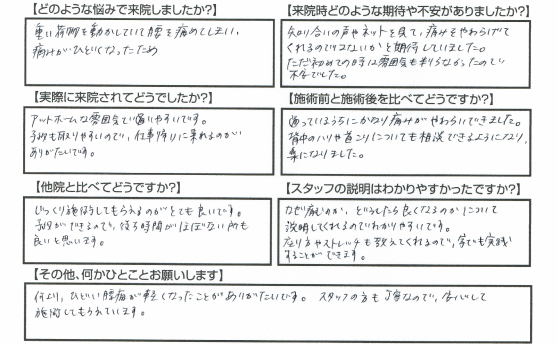 【どのような悩みで来院しましたか?】
重い荷物を動かしていて腰を痛めてしまい、
痛みがひどくなったため
【来院時どのような期待や不安がありましたか?】
知り合いの声やネットを見て、痛みをやわらげて
くれるのではないかと期待していました。
ただ初めての時は雰囲気も判らなかったので
不安でした。
【実際に来院されてどうでしたか?】
アットホームな雰囲気で通いやすいです。
予約も取りやすいので、仕事帰りに来れるのが
ありがたいです。
【施術前と施術後を比べてどうですか?】
通っているうちにかなり痛みがやわらいできました。
背中のハリや首こりについても相談できるようになり、
楽になりました。
【他院と比べてどうですか?】
じっくり施術してもらえるのがとても良いです。
予約ができるので、待ち時間がほぼない所も
良いと思います。
【スタッフの説明はわかりやすかったですか?】
なぜ痛いのか、どうしたら良くなるのかについて
説明してくれるのでわかりやすいです。
なり方やストレッチも教えてくれるので、家でも実践
することができます。
【その他、何かひとことお願いします】
何より、ひどい腰痛が軽くなったことがありがたいです。 スタッフの方も丁寧なので、安心して
施術してもらえています。